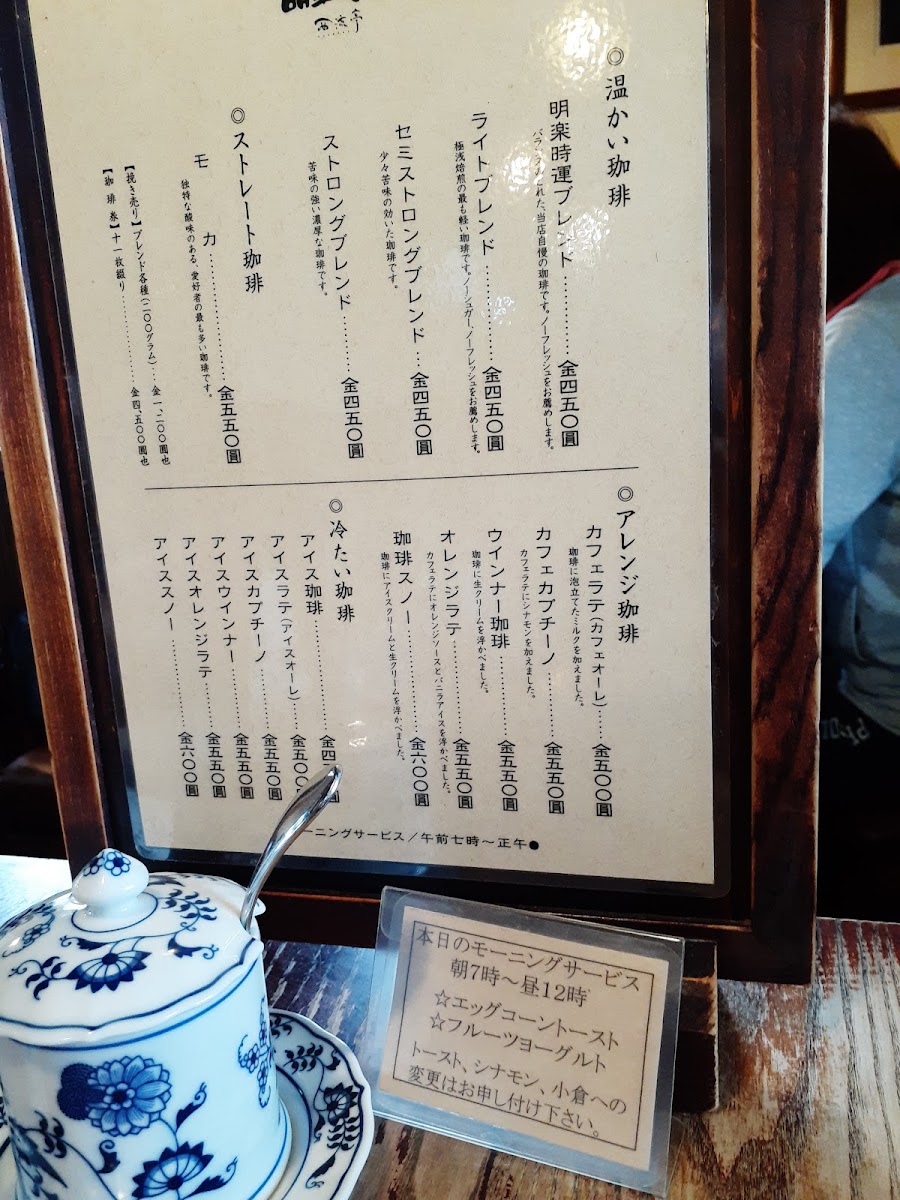 西流亭
◎温かい珈琲
明楽時運ブレンド…………金四五〇圓
バランスのとれた、当店自慢の珈琲です。ノーシュガー、ノーフレッシュをお薦めします。
ライトブレンド…………金四五〇圓
極浅焙煎の最も軽い珈琲です。ノーシュガー、ノーフレッシュをお薦めします。
セミストロングブレンド…金四五〇圓
少々苦味の効いた珈琲です。
ストロングブレンド………金四五〇圓
苦味の強い濃厚な珈琲です。
◎ストレート珈琲
モカ……………金五五〇圓
独特な酸味のある、愛好者の最も多い珈琲です。
【挽き売り】ブレンド各種(二〇〇グラム)…金一、二〇〇圓也
【珈琲券】十一枚綴り……………金四、五〇〇圓也
◎アレンジ珈琲
カフェラテ(カフェオーレ)……金五〇〇圓
珈琲に泡立てたミルクを加えました。
カフェカプチーノ…………金五五〇圓
カフェラテにシナモンを加えました。
ウインナー珈琲…………金五五〇圓
珈琲に生クリームを浮かべました。
オレンジラテ……………金五五〇圓
カフェラテにオレンジソースとバニラアイスを浮かべました。
珈琲スノー……………金六〇〇圓
珈琲にアイスクリームと生クリームを浮かべました。
◎冷たい珈琲
アイス珈琲……………金四
アイスラテ(アイスオーレ)……金五〇
アイスカプチーノ…………金五五〇圓
アイスウインナー…………金五五〇圓
アイスオレンジラテ………金五五〇圓
アイススノー……………金六〇〇圓
ーニングサービス/午前七時~正午●
本日のモーニングサービス
朝7時~昼12時
☆エッグコーントースト
☆フルーツヨーグルト
トースト、シナモン、小倉への
変更はお申し付け下さい。